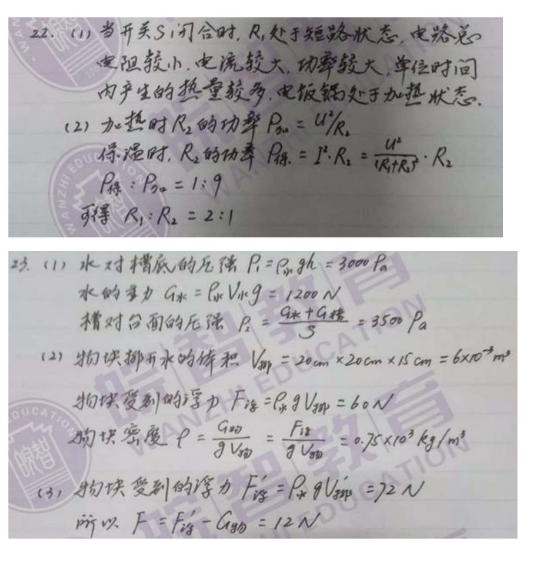 22. (1) 当开关S₁闭合时, R₁处于短路状态, 电路总
电阻较小, 电流较大, 功率较大, 单位时间
内产生的热量较多, 电饭锅处于加热状态.
(2) 加热时R₂的功率 P加 = U²/R₂
保温时, R₂的功率 P保 = I²·R₂ = U²/(R₁+R₂)²·R₂
P保 : P加 = 1:9
可得 R₁:R₂ = 2:1
23. (1) 水对槽底的压强 P₁ = ρ水gh = 3000 Pa
水的重力 G水 = ρ水V水g = 1200 N
槽对台面的压强 P₂ = (G水+G槽)/S = 3500 Pa
(2) 物块排开水的体积 V排 = 20cm×20cm×15cm = 6×10⁻³m³
物块受到的浮力 F浮 = ρ水gV排 = 60N
物块密度 ρ = G物/gV物 = F浮/gV物 = 0.75×10³kg/m³
(3) 物块受到的浮力 F浮′ = ρ水gV排′ = 72N
所以 F = F浮′ - G物 = 12N
皖智教育
WANZHI EDUCATION